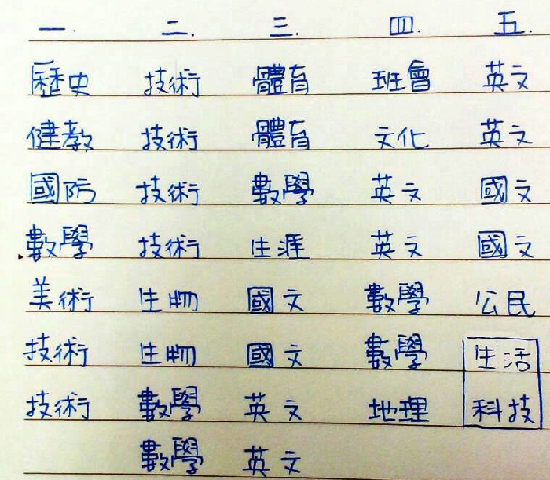 一. 二. 三. 四. 五.
歷史 技術 體育 班會 英文
健教 技術 體育 文化 英文
國防 技術 數學 英文 國文
數學 技術 生涯 英文 國文
美術 生物 國文 數學 公民
技術 生物 國文 數學 生活
技術 數學 英文 地理 科技
數學 英文